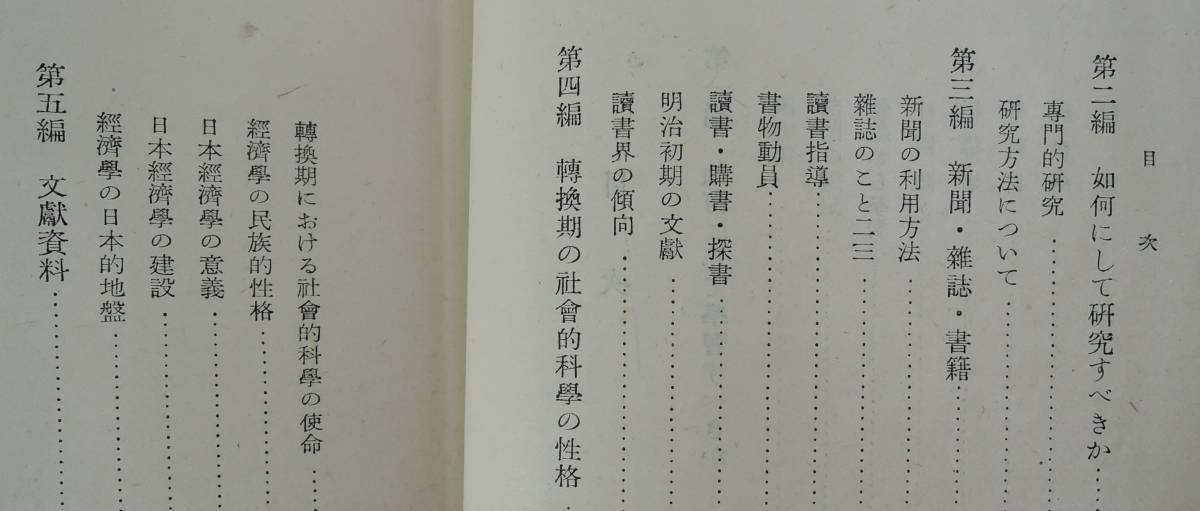 目次
第二編　如何にして硏究すべきか……
專門的硏究……………
硏究方法について……………
第三編　新聞・雜誌・書籍……………
新聞の利用方法……………
雜誌のこと二三……………
讀書指導……………
書物動員……………
讀書・購書・探書……………
明治初期の文獻……………
讀書界の傾向……………
第四編　轉換期の社會的科學の性格……
轉換期における社會的科學の使命……
經濟學の民族的性格……………
日本經濟學の意義……………
日本經濟學の建設……………
經濟學の日本的地盤……………
第五編　文獻資料……………